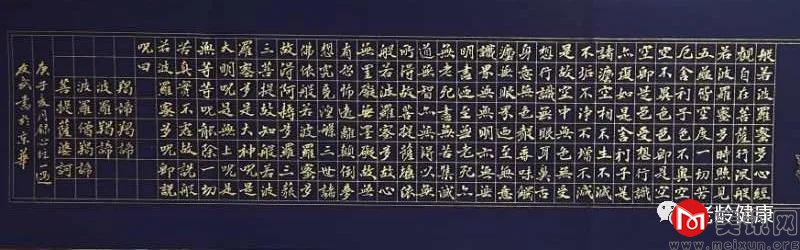 般若波羅蜜多心經
觀自在菩薩行深般
若波羅蜜多時照見
五蘊皆空度一切苦
厄舍利子色不異空
空不異色色即是空
空即是色受想行識
亦復如是舍利子是
諸法空相不生不滅
不垢不淨不增不減
是故空中無色無受
想行識無眼耳鼻舌
身意無色聲香味觸
法無眼界乃至無意
識界無無明亦無無
明盡乃至無老死亦
無老死盡無苦集滅
道無智亦無得以無
所得故菩提薩埵依
般若波羅蜜多故心
無罣礙無罣礙故無
有恐怖遠離顛倒夢
想究竟涅槃三世諸
佛依般若波羅蜜多
故得阿耨多羅三藐
三菩提故知般若波
羅蜜多是大神呪是
大明呪是無上呪是
無等等呪能除一切
苦真實不虛故說般
若波羅蜜多呪即說
呪曰
羯諦羯諦
波羅羯諦
波羅僧羯諦
菩提薩婆訶
庚子亥月錄心經一遍
書於京華
老龄健康
美讯网
www.meixun.org